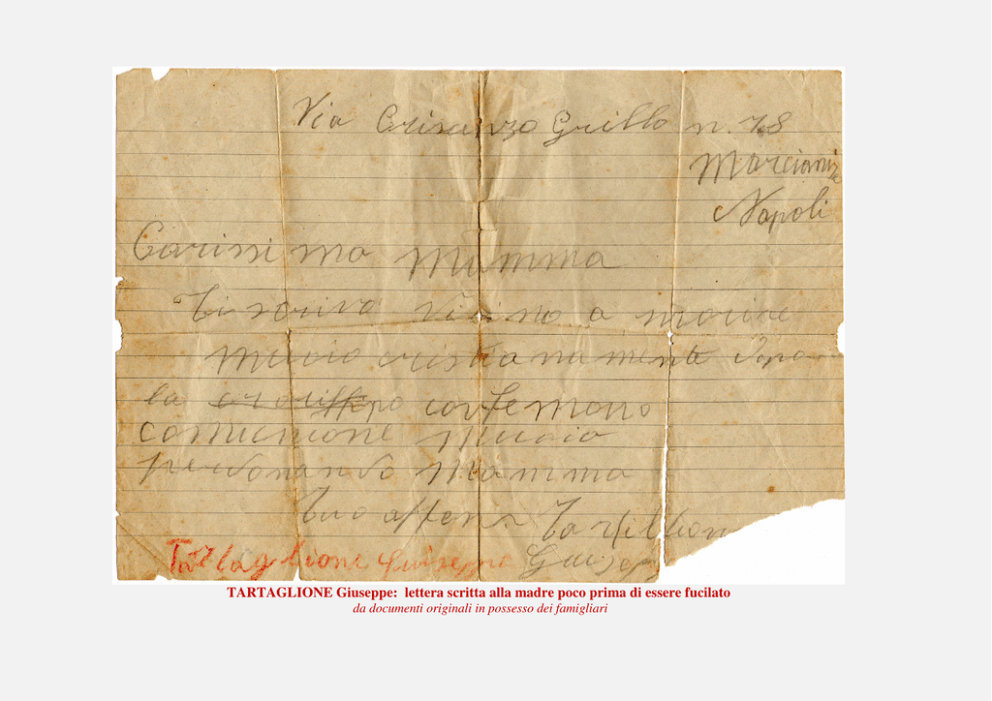 Via Grisanzo Grillo n. 78
Marcianiz
Napoli
Carissi ma Mamma
Ti scrivo vicino a morire
muoio cristianamente dopo
la
comunione muoio
perdonando Mamma
tuo
Giusep
Tartaglione Guiseppe
TARTAGLIONE Giuseppe: lettera scritta alla madre poco prima di essere fucilato
da documenti originali in possesso dei famigliari